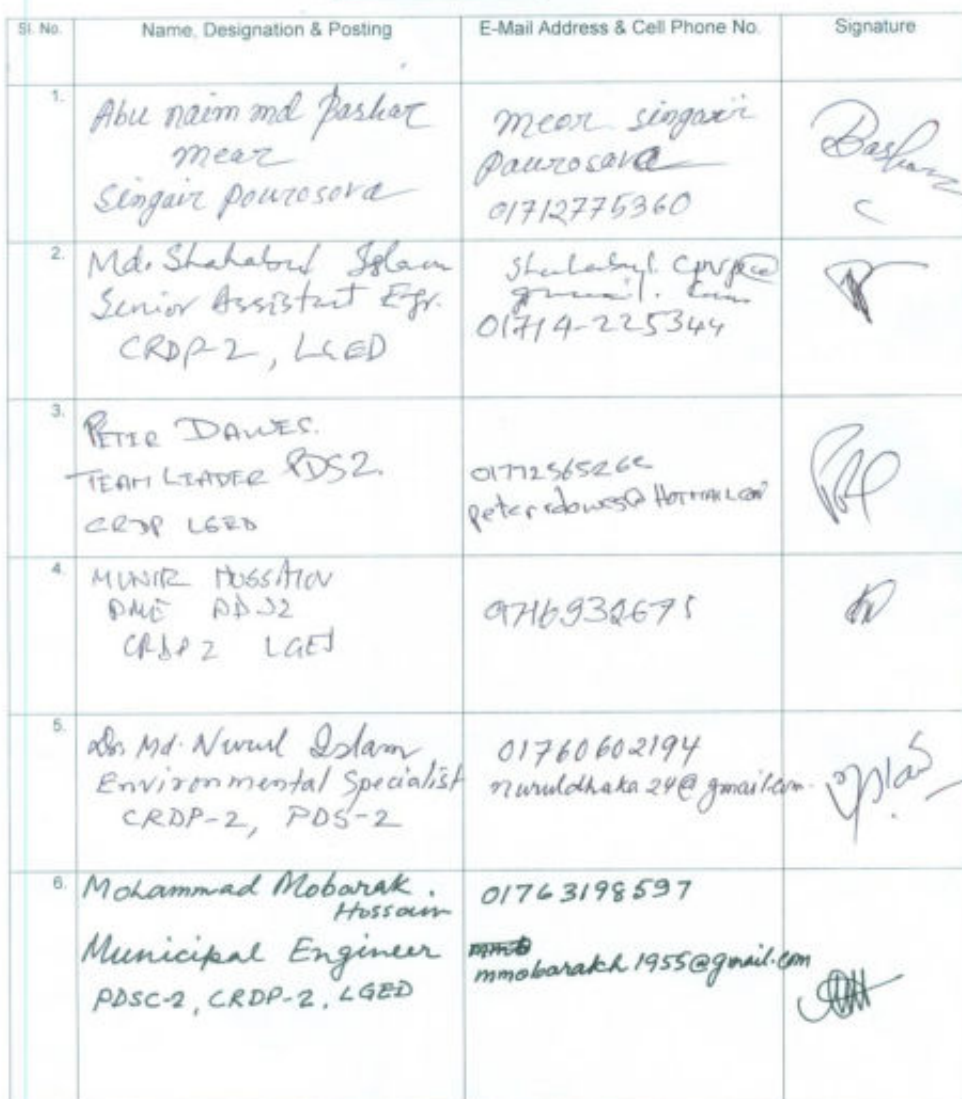 Sl. No. Name, Designation & Posting E-Mail Address & Cell Phone No. Signature
1. Abu naim md Bashar
mear
Singair pourosova
meor singair
Paurosava
01712775360
Bashar
2. Md. Shahabul Islam
Senior Assistant Egr.
CRDP-2, LGED
01714-225344
3. PETER DAWES.
TEAM LEADER PDS2.
CRDP LGED
4. MUNIR HOSSAIN
CRDP2 LGED
5. Dr. Md. Nurul Islam
Environmental Specialist
CRDP-2, PDS-2
01760602194
nuruldhaka24@gmail.com
6. Mohammad Mobarak.
Hossain
Municipal Engineer
PDSC-2, CRDP-2, LGED
01763198597
mmobarakh1955@gmail.com